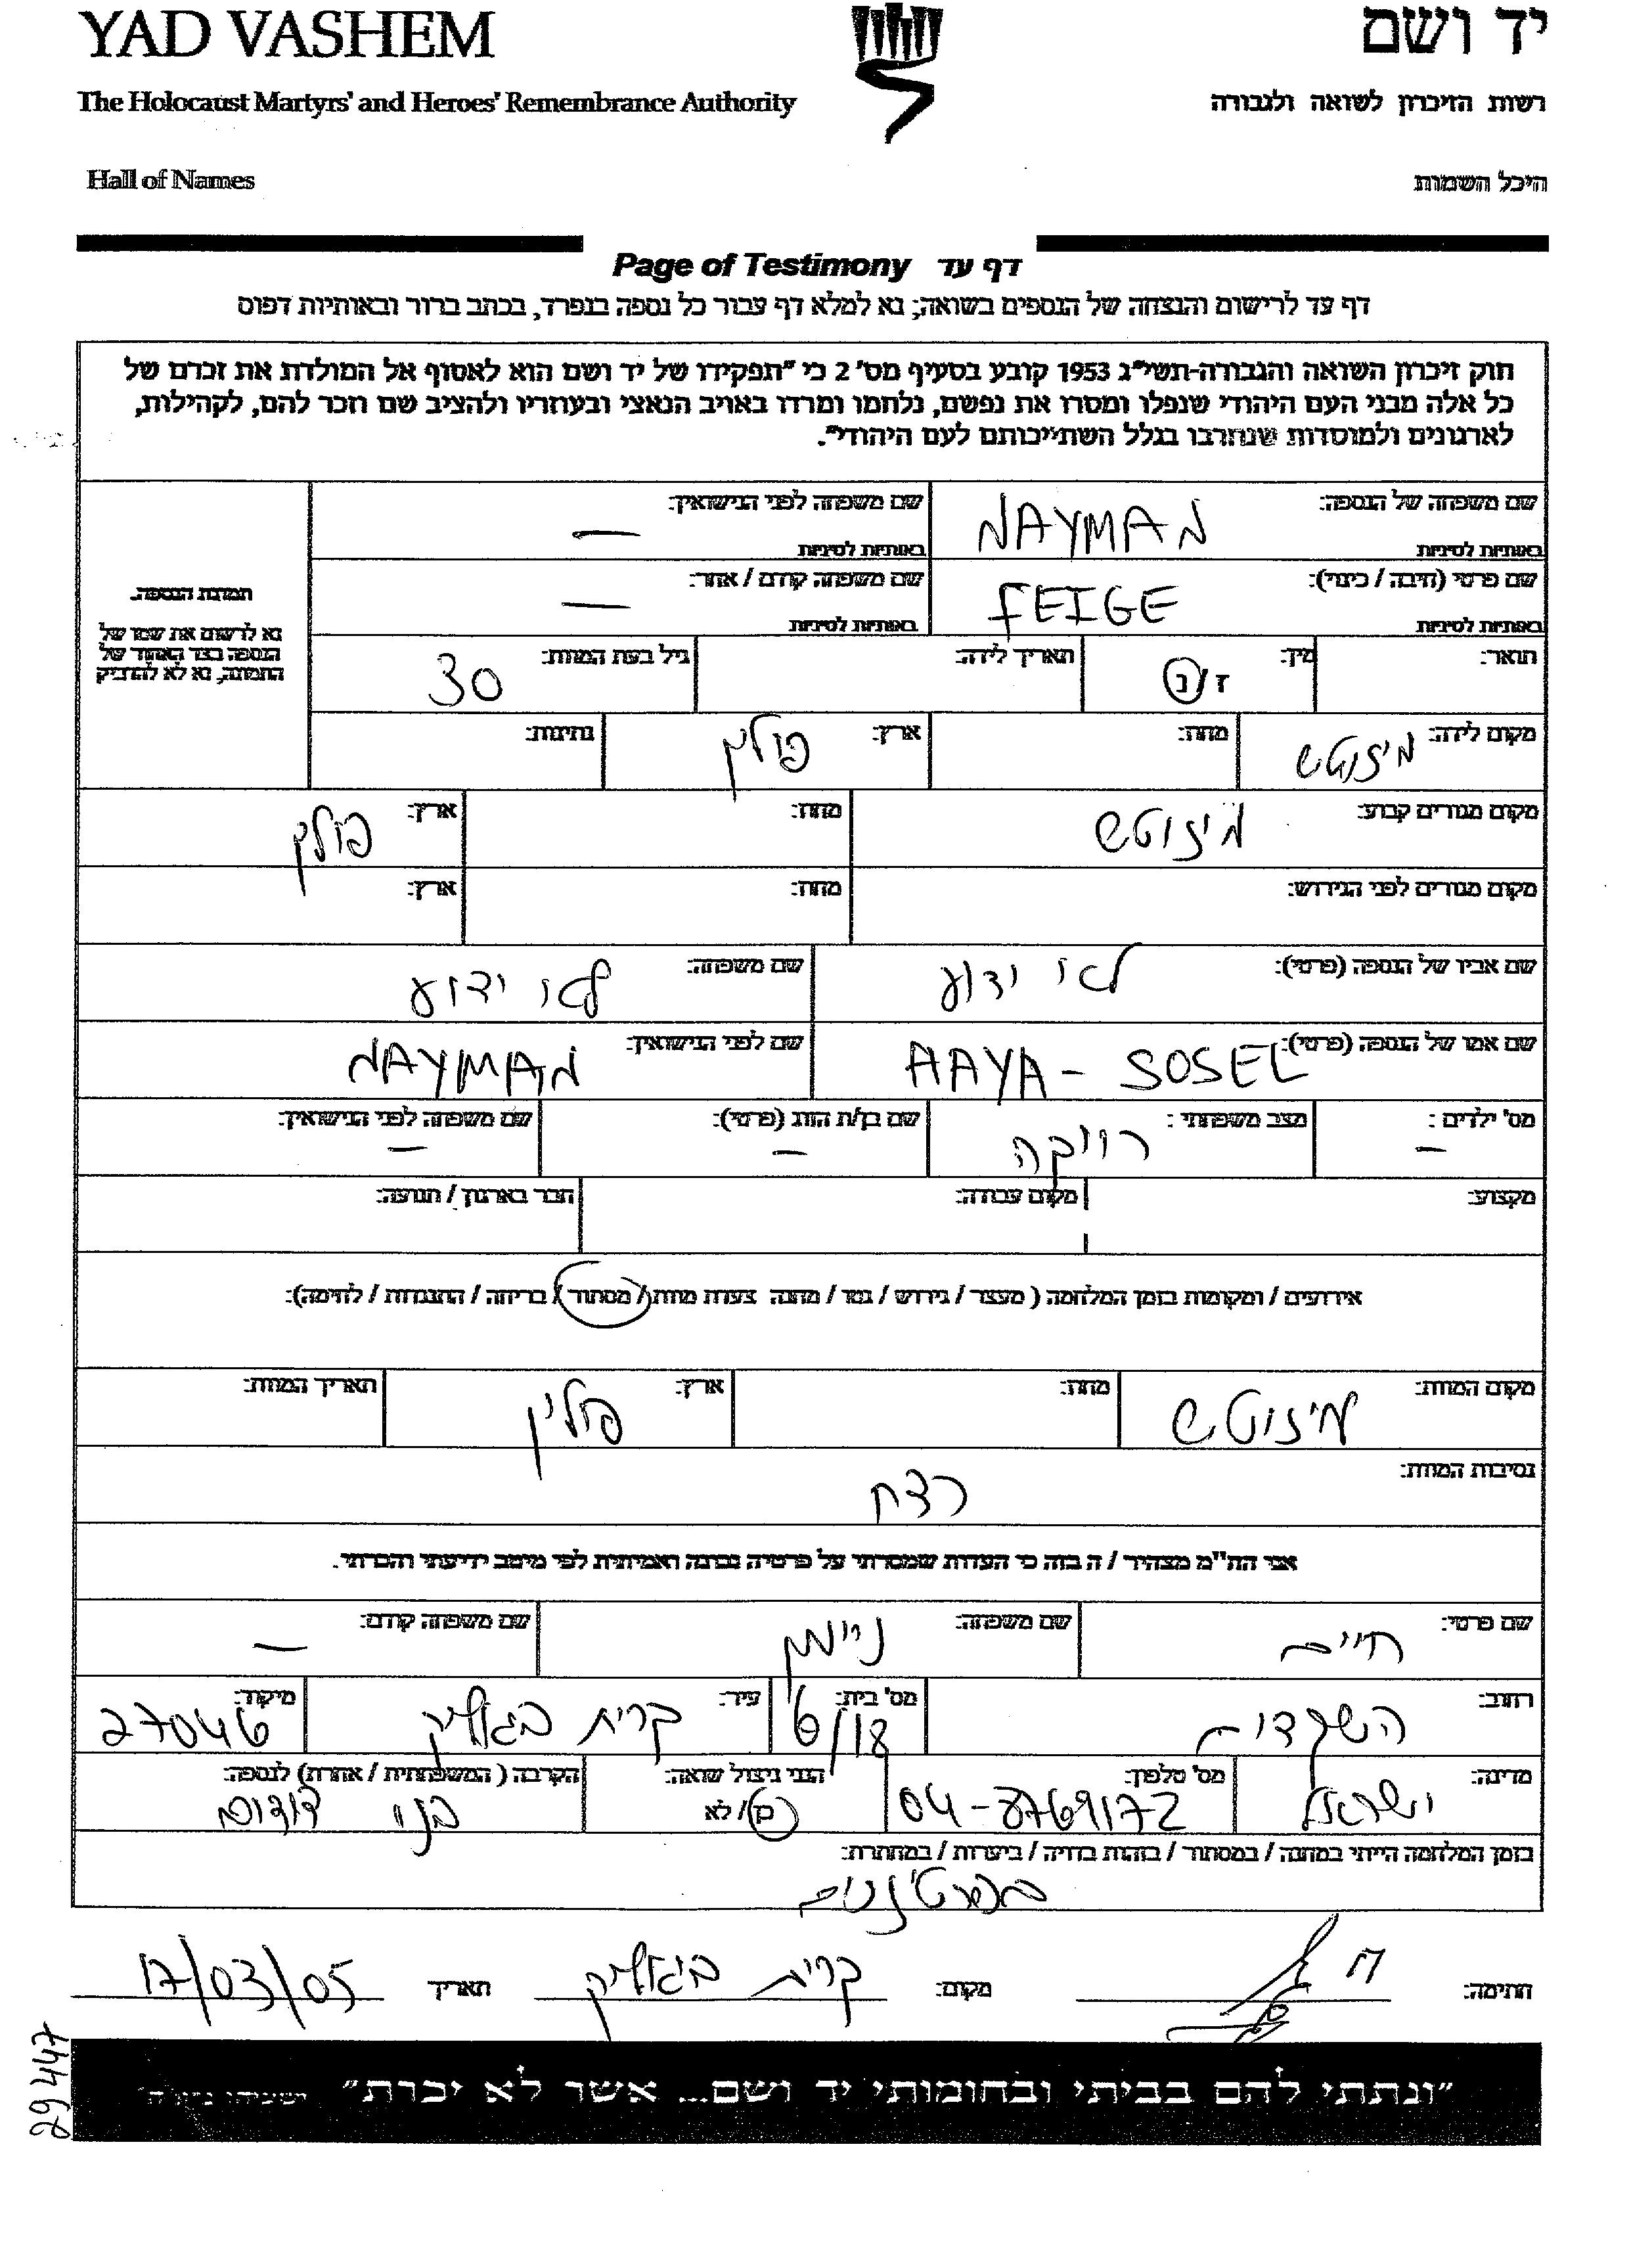 YAD VASHEM
יד ושם
The Holocaust Martyrs' and Heroes' Remembrance Authority
רשות הזיכרון לשואה ולגבורה
Hall of Names
היכל השמות
דף עד Page of Testimony
דף עד לרישום והנצחה של הנספים בשואה; נא למלא דף עבור כל נספה בנפרד, בכתב ברור ובאותיות דפוס
חוק זיכרון השואה והגבורה-תשי"ג 1953 קובע בסעיף מס' 2 כי "תפקידו של יד ושם הוא לאסוף אל המולדת את זכרם של
כל אלה מבני העם היהודי שנפלו ומסרו את נפשם, נלחמו ומרדו באויב הנאצי ובעוזריו ולהציב שם וזכר להם, לקהילות,
לארגונים ולמוסדות שנחרבו בגלל השתייכותם לעם היהודי".
שם משפחה של הנספה: NAYMAN
באותיות לטיניות
שם משפחה לפני הנישואין: —
באותיות לטיניות
שם פרטי (חיבה / כינוי): FEIGE
באותיות לטיניות
שם משפחה קודם / אחר: —
באותיות לטיניות
תמונת הנספה.
נא לרשום את שמו של
הנספה בצד האחורי של
התמונה, נא לא להדביק
תואר:
מין: ז / נ
תאריך לידה:
גיל בעת המוות: 30
מקום לידה: מיזוטש
מחוז:
ארץ: פולין
נתינות:
מקום מגורים קבוע: מיזוטש
מחוז:
ארץ: פולין
מקום מגורים לפני הגירוש:
מחוז:
ארץ:
שם אביו של הנספה (פרטי): לא ידוע
שם משפחה: לא ידוע
שם אמו של הנספה (פרטי): HAYA - SOSEL
שם לפני הנישואין: NAYMAN
מס' ילדים : —
מצב משפחתי : רווקה
שם בן/ת הזוג (פרטי): —
שם משפחה לפני הנישואין: —
מקצוע:
מקום עבודה:
חבר בארגון / תנועה:
אירועים / ומקומות בזמן המלחמה ( מעצר / גירוש / גטו / מחנה צעדת מוות / מסתור / בריחה / התנגדות / לחימה):
מקום המוות: מיזוטש
מחוז:
ארץ: פולין
תאריך המוות:
נסיבות המוות:
רצח
אני הח"מ מצהיר / ה בזה כי העדות שמסרתי על פרטיה נכונה ואמיתית לפי מיטב ידיעתי והכרתי.
שם פרטי: חיים
שם משפחה: ניימן
שם משפחה קודם: —
רחוב: השקדים
מס' בית: 6/18
עיר: קרית ביאליק
מיקוד: 27046
מדינה: ישראל
מס' טלפון: 04-8769172
הנני ניצול שואה: כן / לא
הקרבה ( המשפחתית / אחרת) לנספה:
בני דודים
בזמן המלחמה הייתי במחנה / במסתור / בזהות בדויה / ביערות / במחתרת:
בפרטיזנים
חתימה:
מקום: קרית ביאליק
תאריך 17/03/05
"ונתתי להם בביתי ובחומותי יד ושם... אשר לא יכרת"
29447